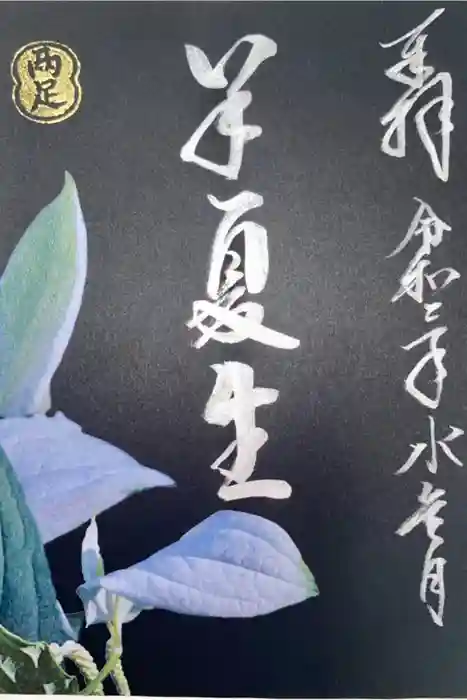 奉拝
令和二年水無月
半夏生
両足